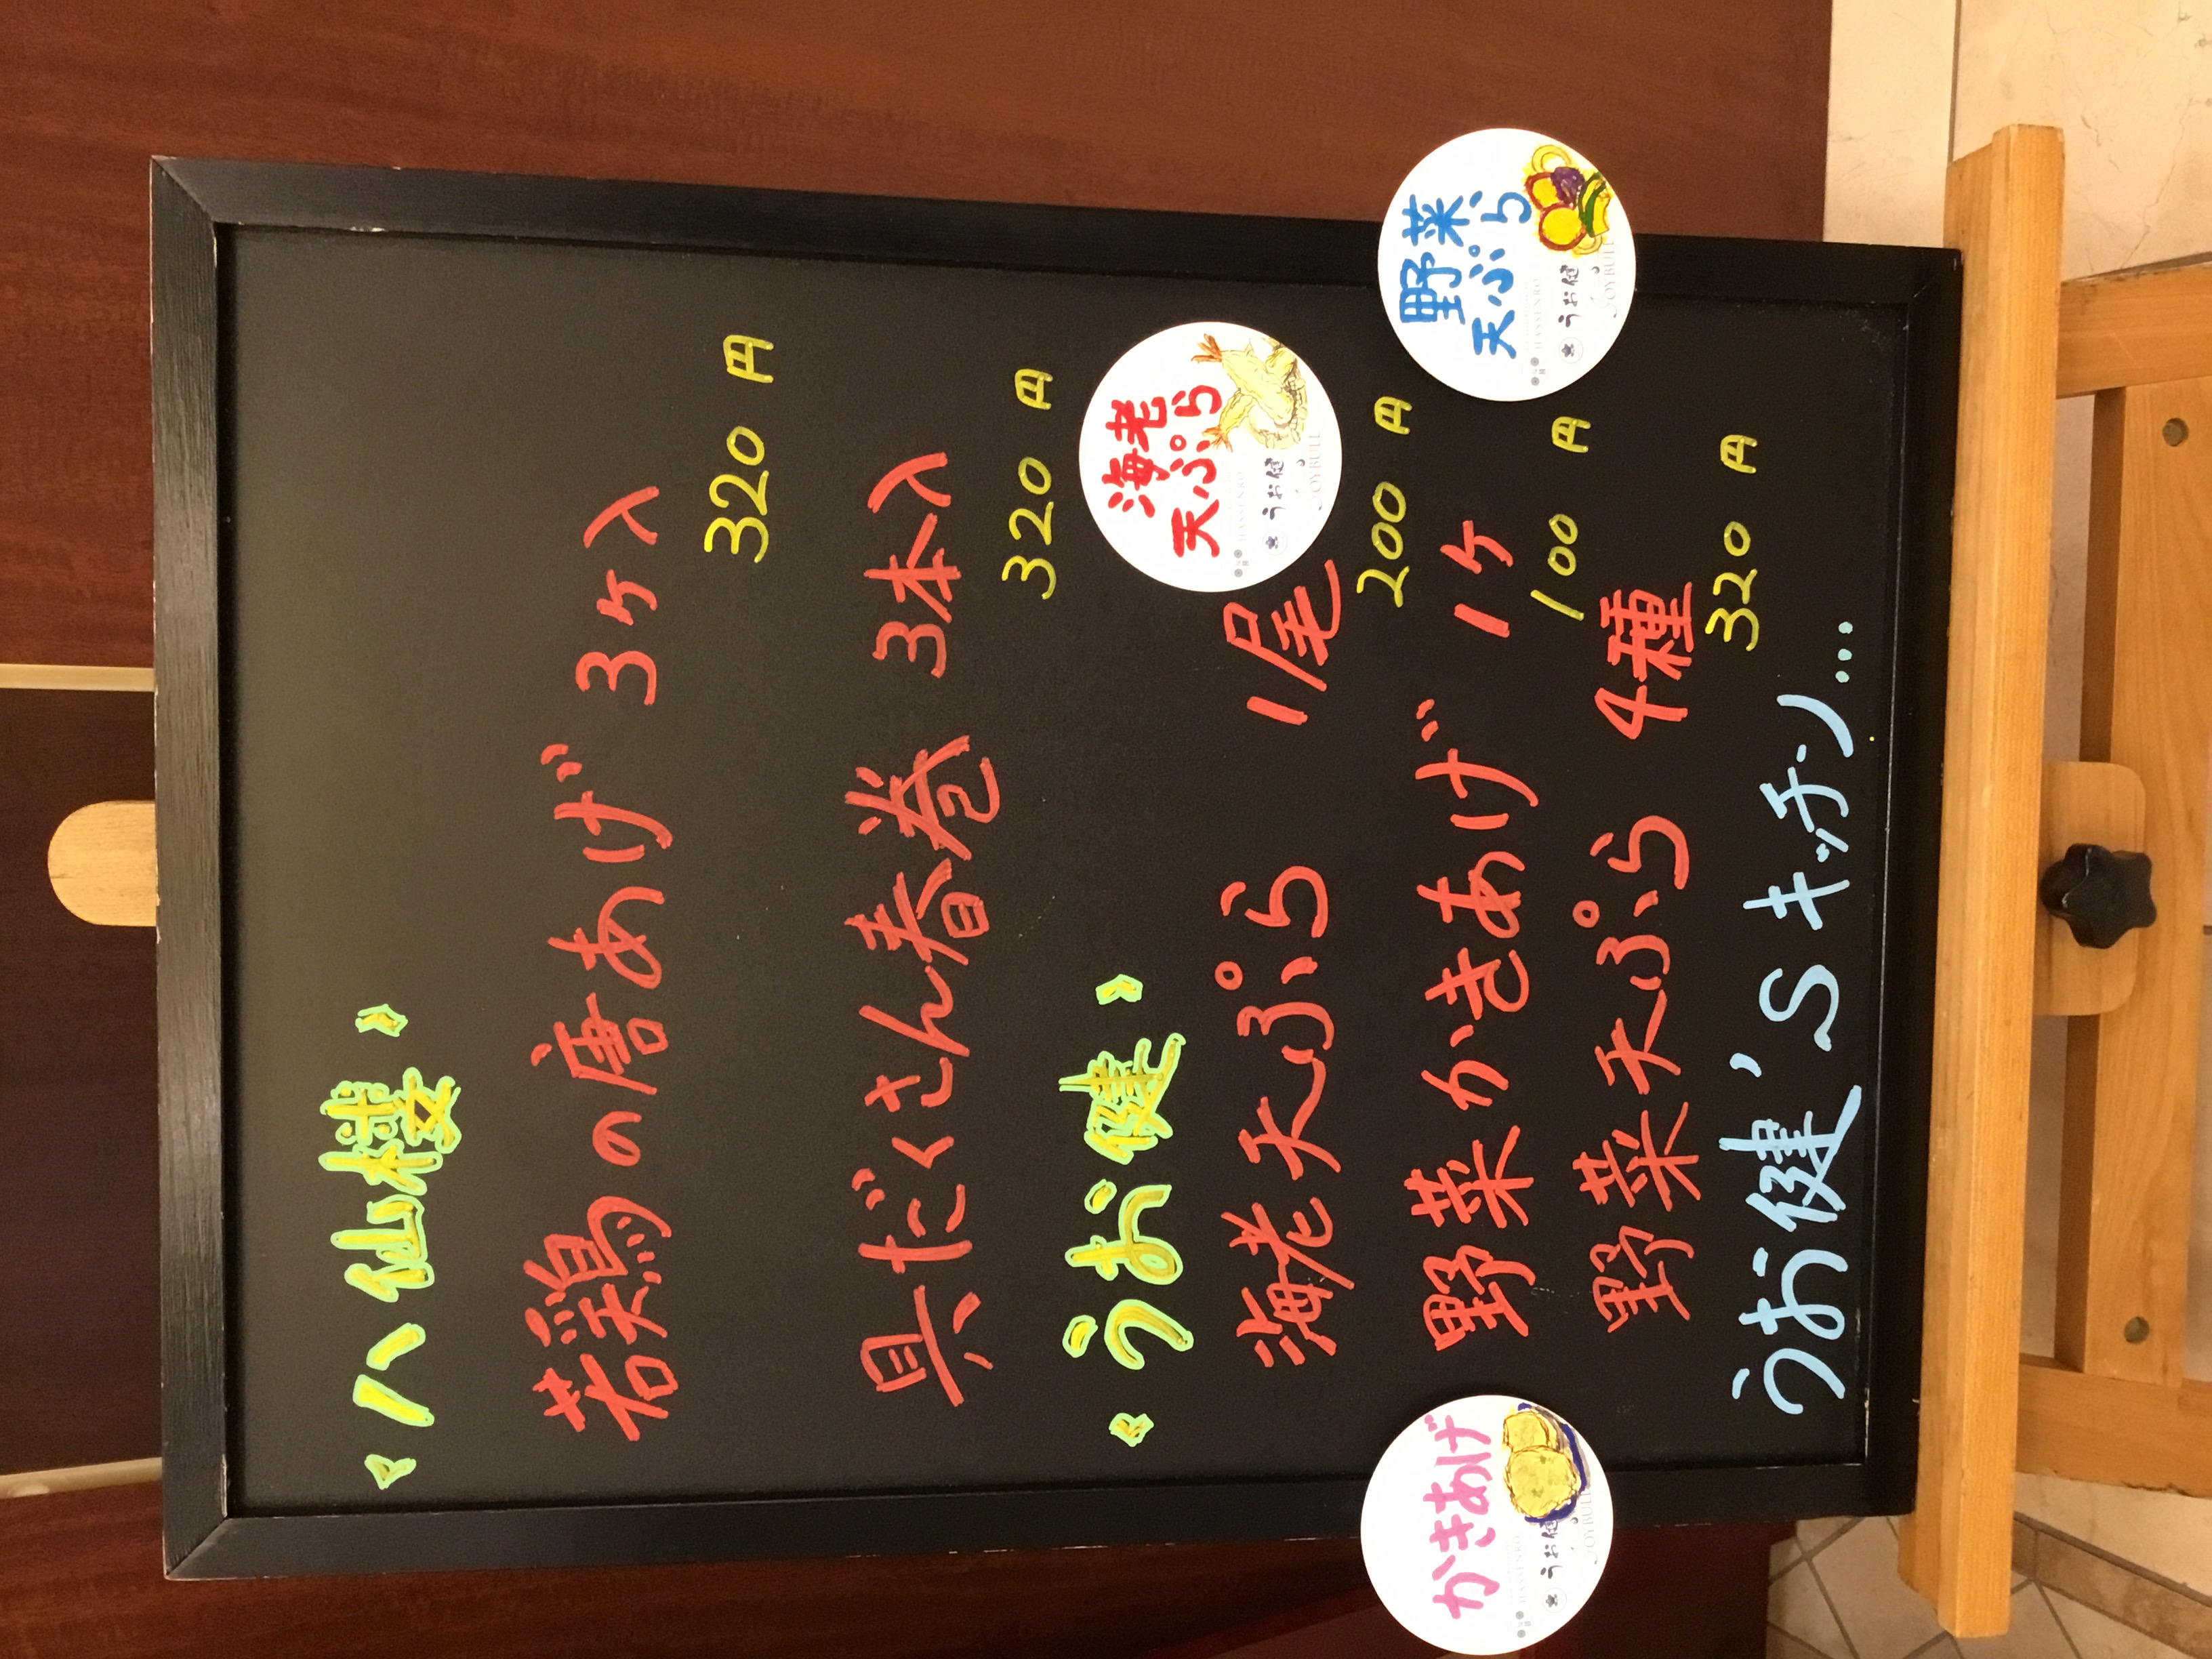 《八仙楼》
若鶏の唐あげ 3ヶ入
320 円
具だくさん春巻 3本入
320 円
《うお健》
海老
天ぷら
HASSENRO
うお健
JOYBULL
海老天ぷら 1尾
200 円
野菜
天ぷら
HASSENRO
うお健
JOYBULL
野菜かきあげ 1ヶ
100 円
かきあげ
HASSENRO
うお健
JOYBULL
野菜天ぷら 4種
320 円
うお健'S キッチン...